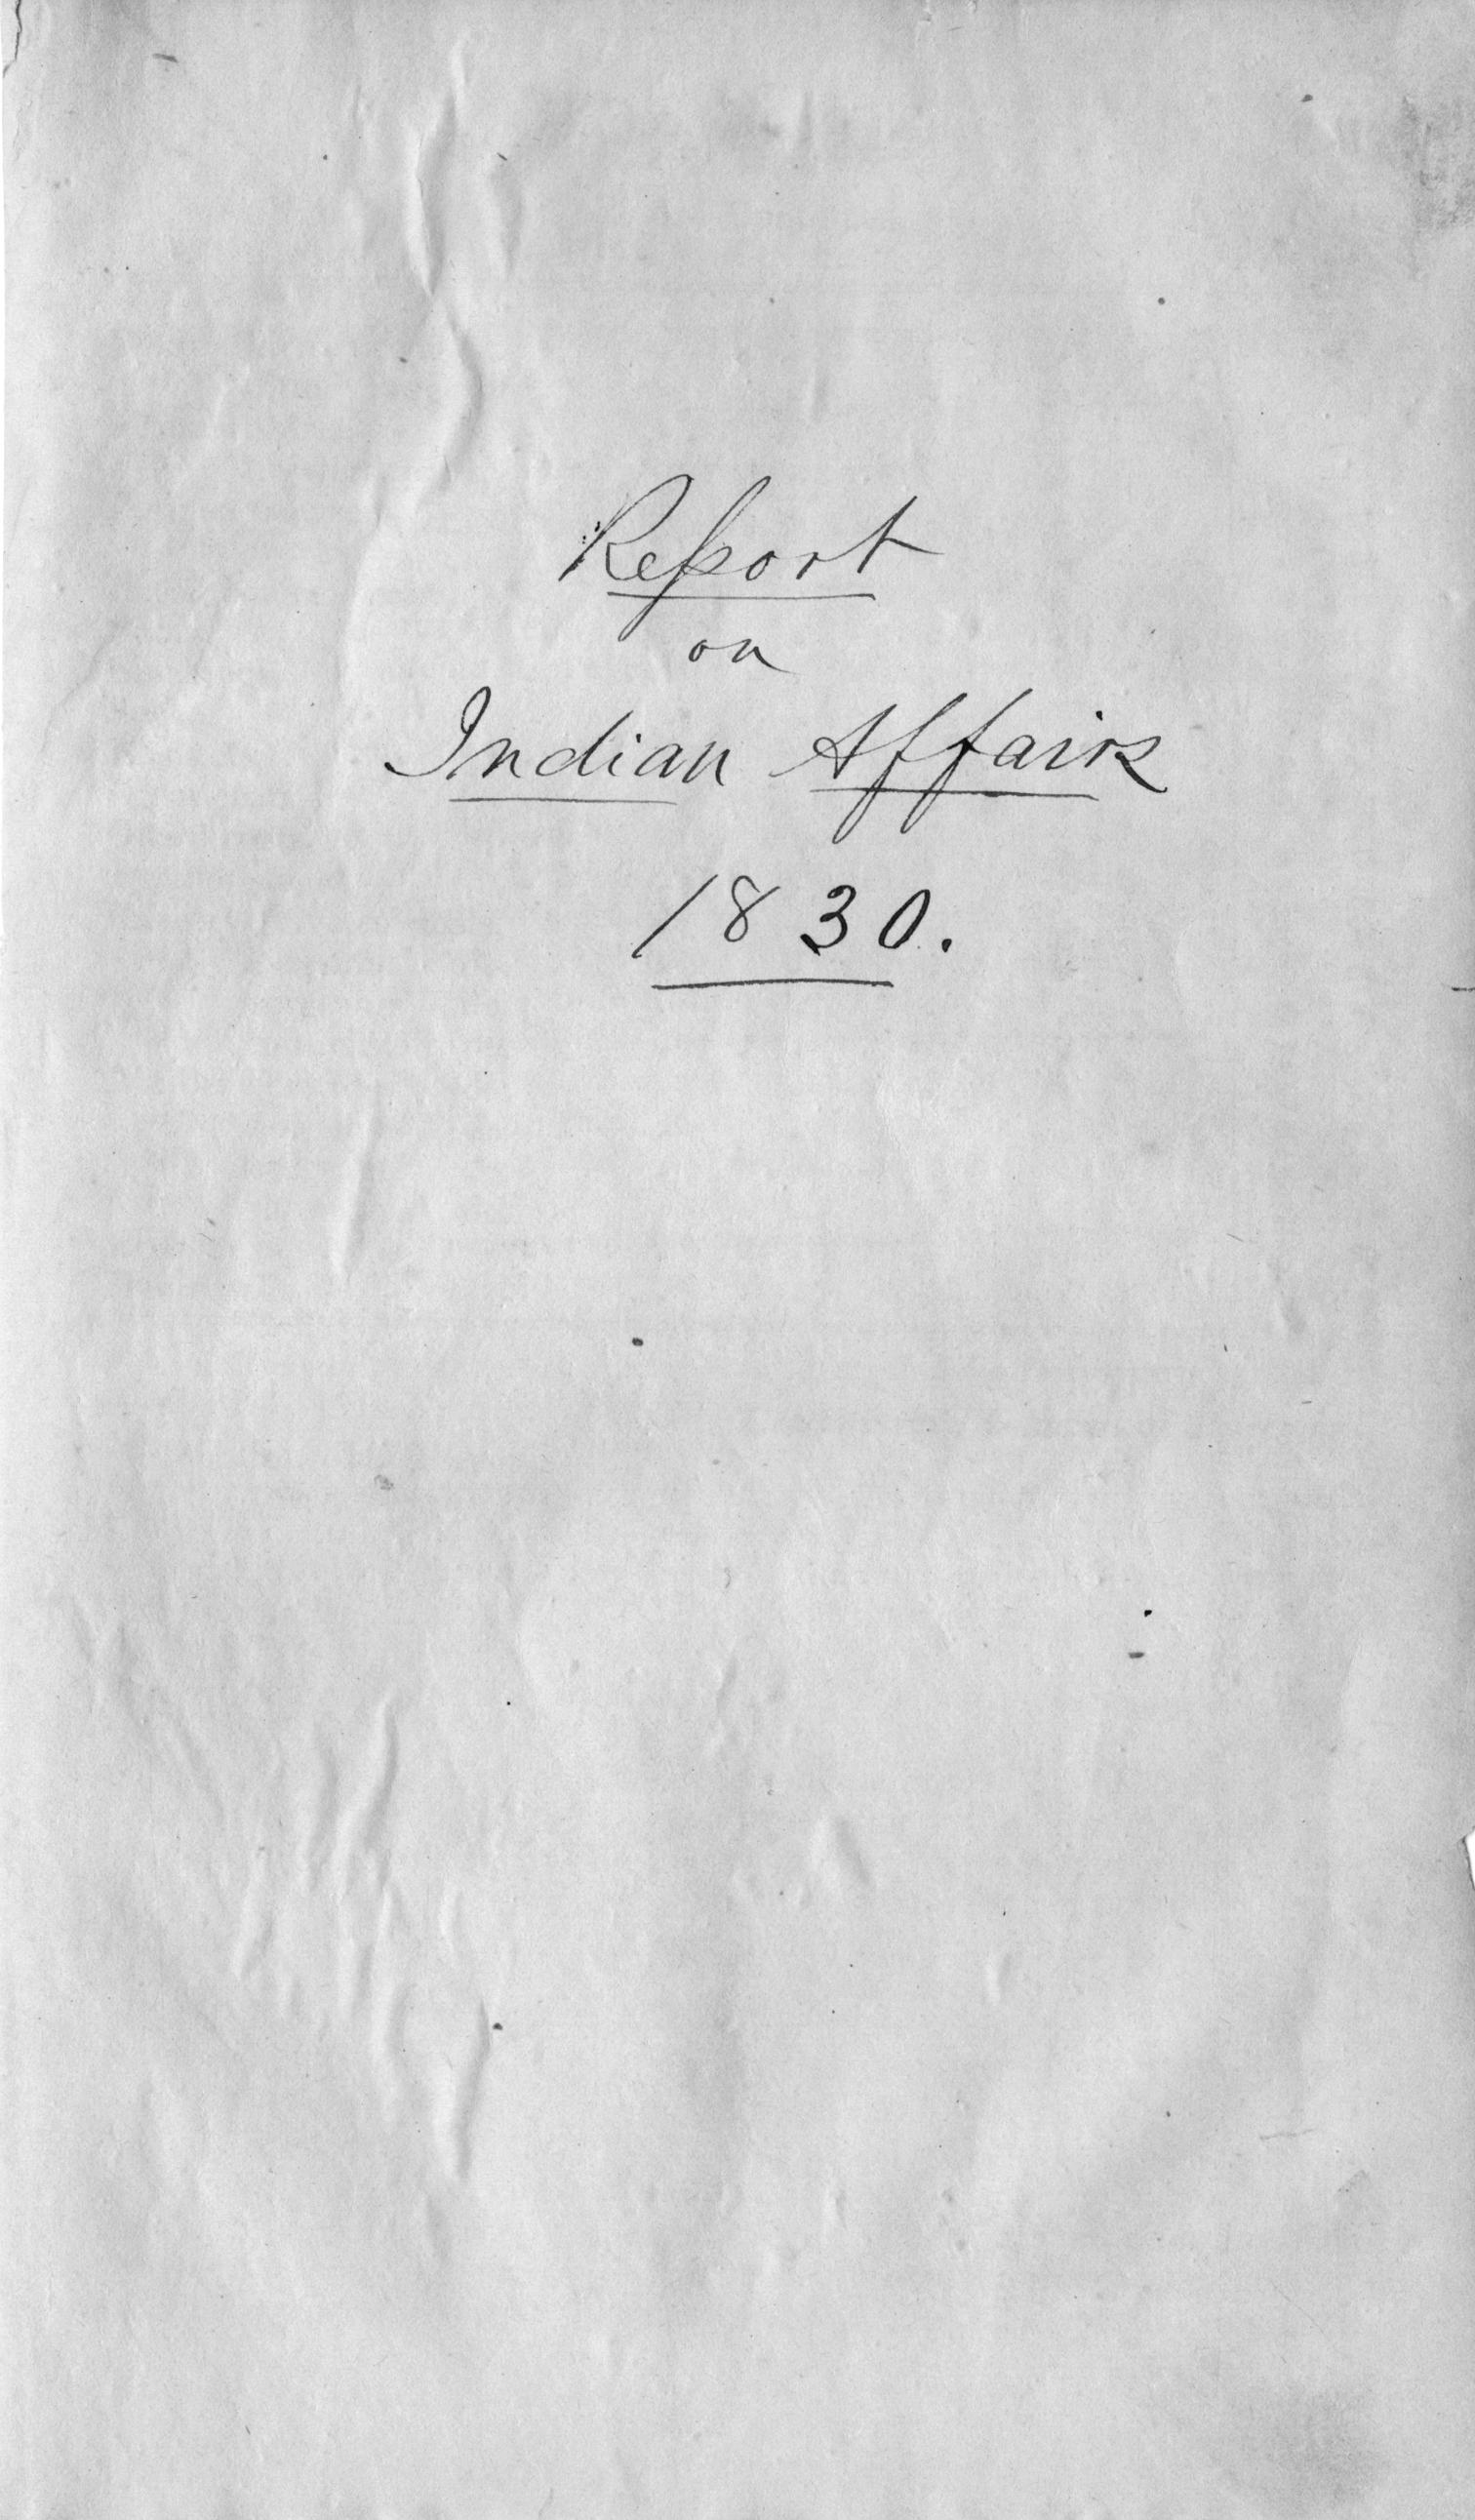 Report
on
Indian Affairs
1830.